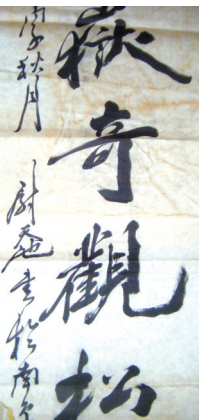 嶽奇觀松
丙子秋月
尉天池書於南